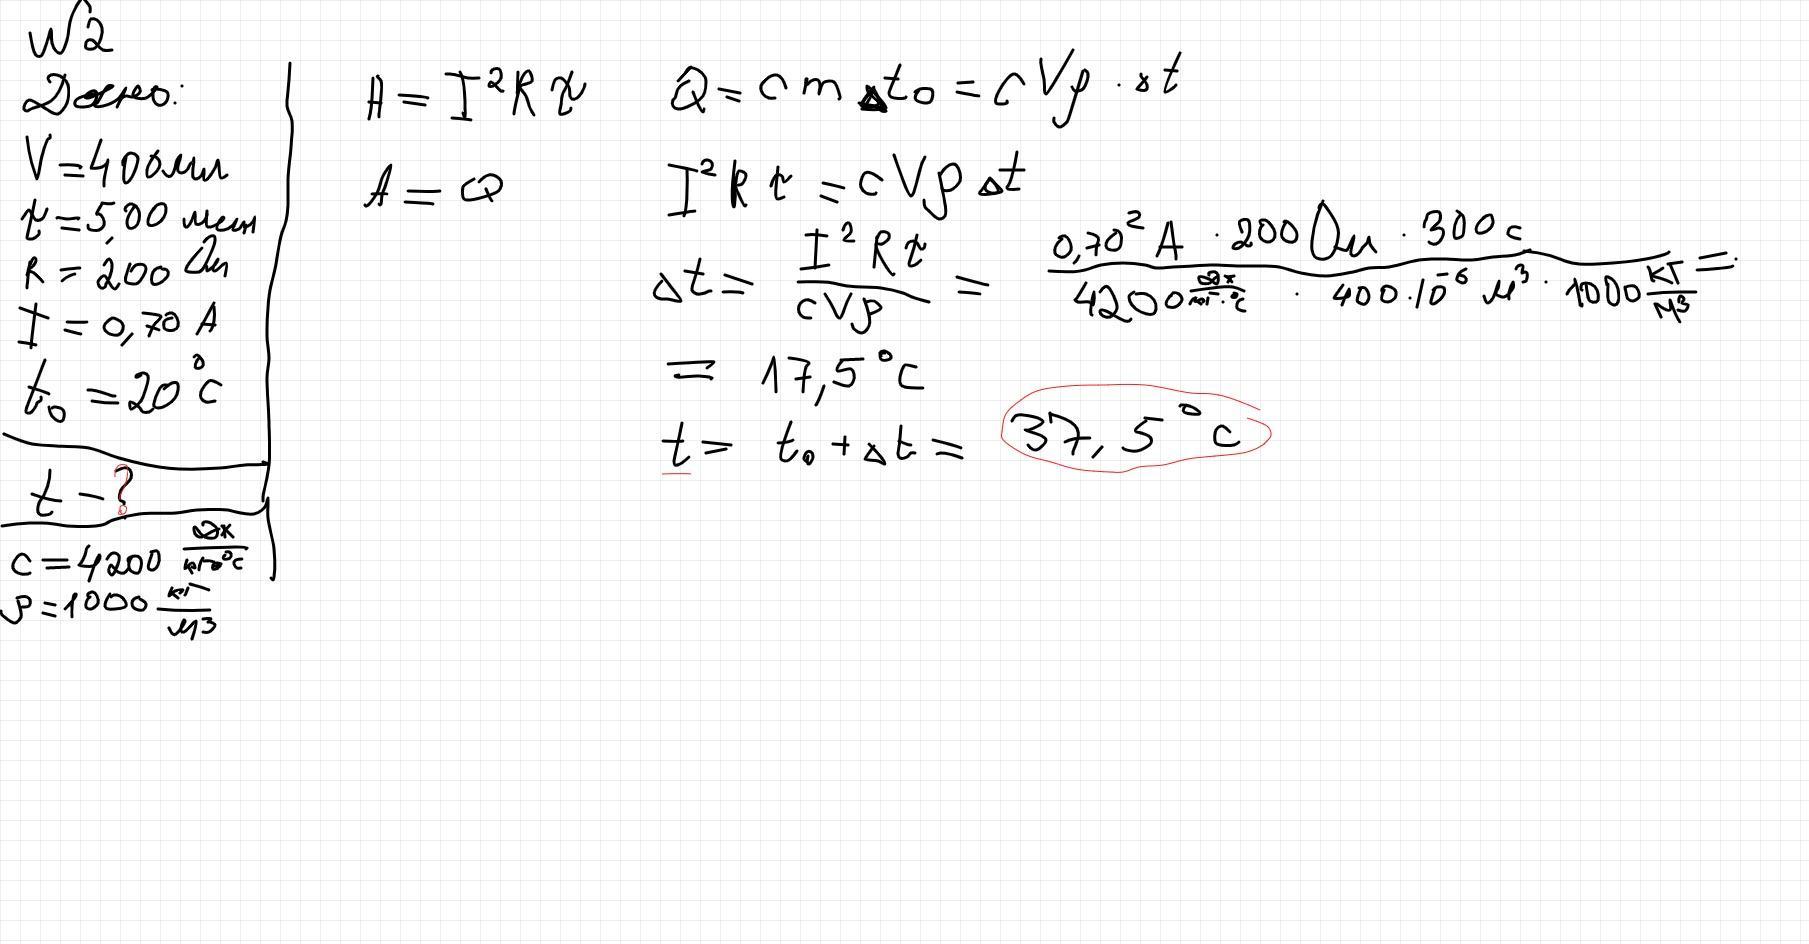 №2
Дано:
V = 400 мл
τ = 5,00 мин
R = 200 Ом
I = 0,70 A
t₀ = 20°C
t - ?
c = 4200 Дж/кг·°C
ρ = 1000 кг/м³
A = I²Rτ
A = Q
Q = c m Δt₀ = cVρ · Δt
I²Rτ = cVρΔt
Δt = I²Rτ / cVρ = 0,70² A · 200 Ом · 300 c / 4200 Дж/кг·°C · 400·10⁻⁶ м³ · 1000 кг/м³ =
= 17,5°C
t = t₀ + Δt = 37,5°C